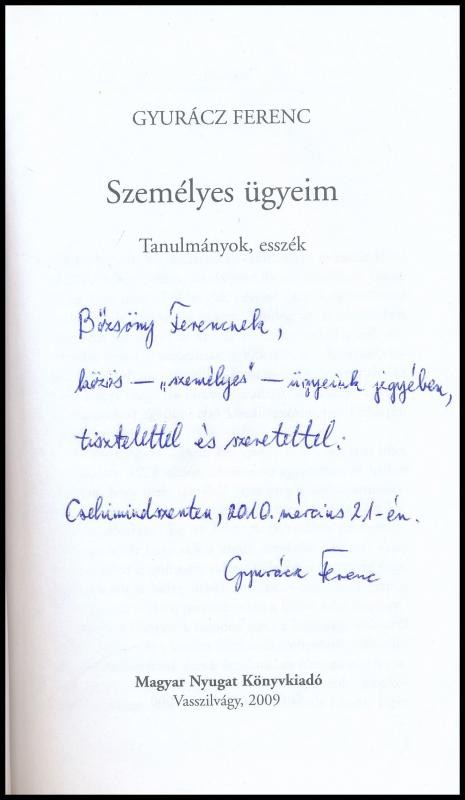 GYURÁCZ FERENC
Személyes ügyeim
Tanulmányok, esszék
Bőzsöny Ferencnek,
közös — „személyes" — ügyeink jegyében,
tisztelettel és szeretettel:
Csehimindszenten, 2010. március 21-én.
Gyurácz Ferenc
Magyar Nyugat Könyvkiadó
Vasszilvágy, 2009